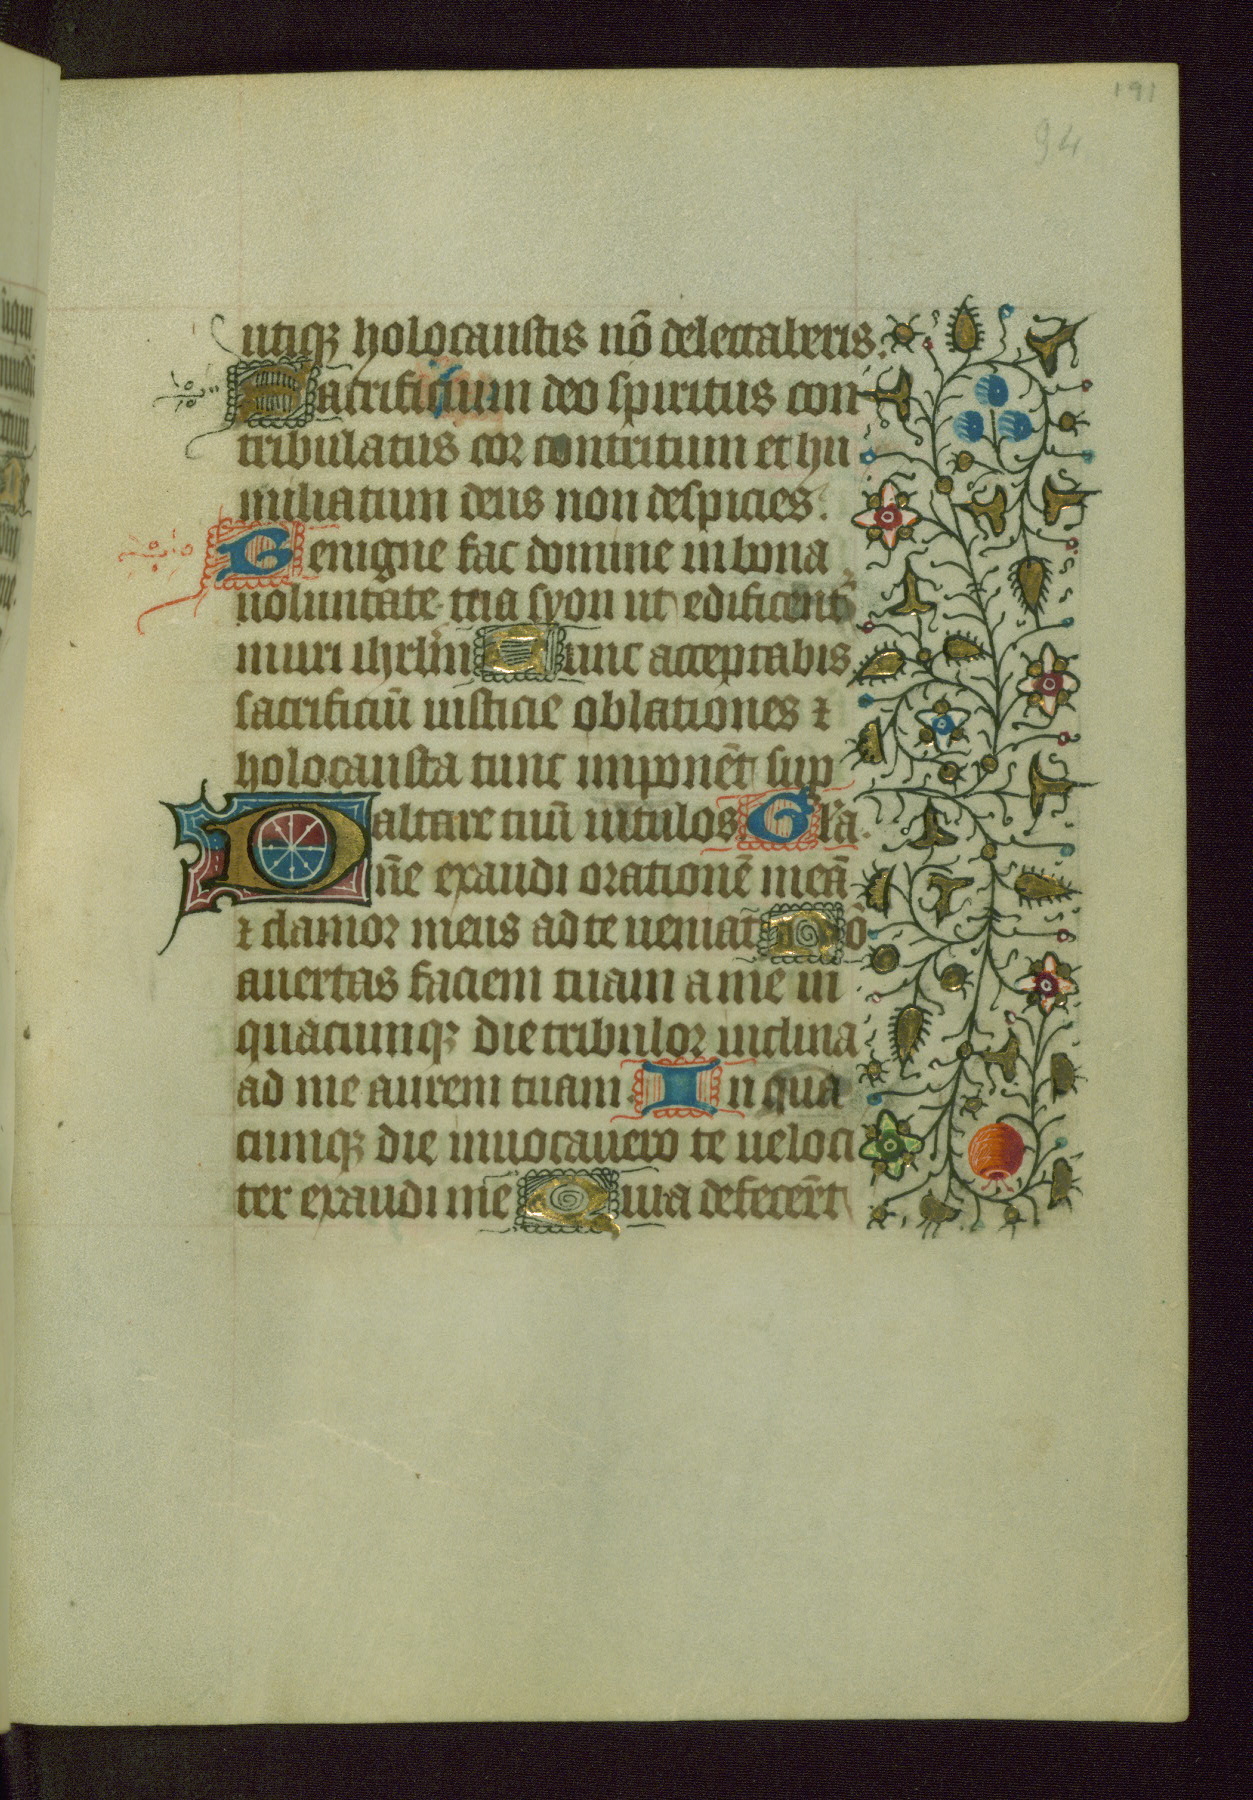 191
94
utiqꝫ holocaustis nō delectaberis.
Sacrificium deo spiritus con
tribulatus cor contritum et hu
miliatum deus non despicies.
Benigne fac domine in bona
uoluntate tua syon ut edificent᷑
muri ihrl̄m Tunc acceptabis
sacrificiū iusticie oblationes ⁊
holocausta tunc imponēt sup
altare tuū uitulos Gl̄a.
Dn̄e exaudi orationē meā
⁊ clamor meus ad te ueniat Nō
auertas faciem tuam a me in
quacumqꝫ die tribulor inclina
ad me aurem tuam In qua
cumqꝫ die inuocauero te ueloci
ter exaudi me Quia defecer̄t